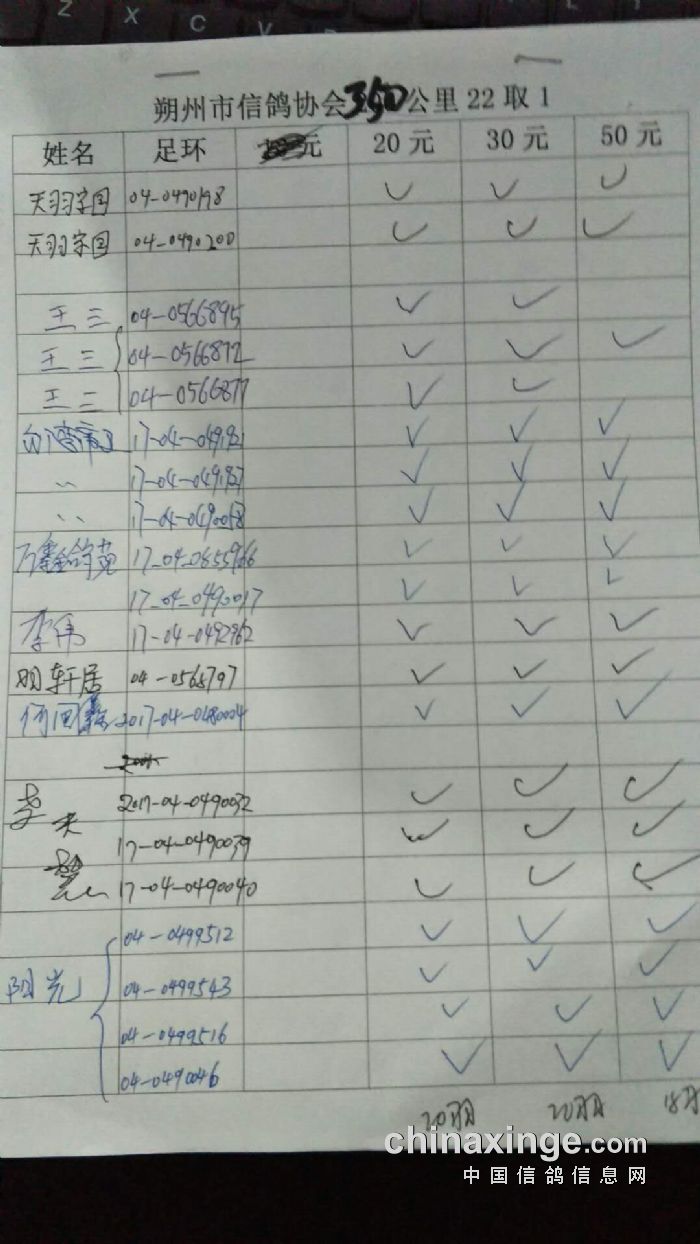 Z X C V
朔州市信鸽协会350公里22取1
姓名 足环 元 20元 30元 50元
天羽宗园 04-0490198 ✓ ✓ ✓
天羽宗园 04-0490200 ✓ ✓ ✓
王三 04-0566895 ✓ ✓
王三 04-0566872 ✓ ✓ ✓
王三 04-0566877 ✓ ✓
17-04-049 ✓ ✓ ✓
〃 17-04-049 ✓ ✓ ✓
〃 17-04-0490058 ✓ ✓ ✓
17-04-0855966 ✓ ✓ ✓
17-04-0490017 ✓ ✓ ✓
李伟 17-04-0492962 ✓ ✓ ✓
轩居 04-0568797 ✓ ✓ ✓
何国 2017-04-0480004 ✓ ✓ ✓
李 2017-04-0490032 ✓ ✓ ✓
17-04-0490039 ✓ ✓ ✓
17-04-0490040 ✓ ✓ ✓
阳光 04-0499512 ✓ ✓ ✓
04-0499543 ✓ ✓ ✓
04-0499516 ✓ ✓ ✓
04-0490046 ✓ ✓ ✓
chinaxinge.com
中国信鸽信息网